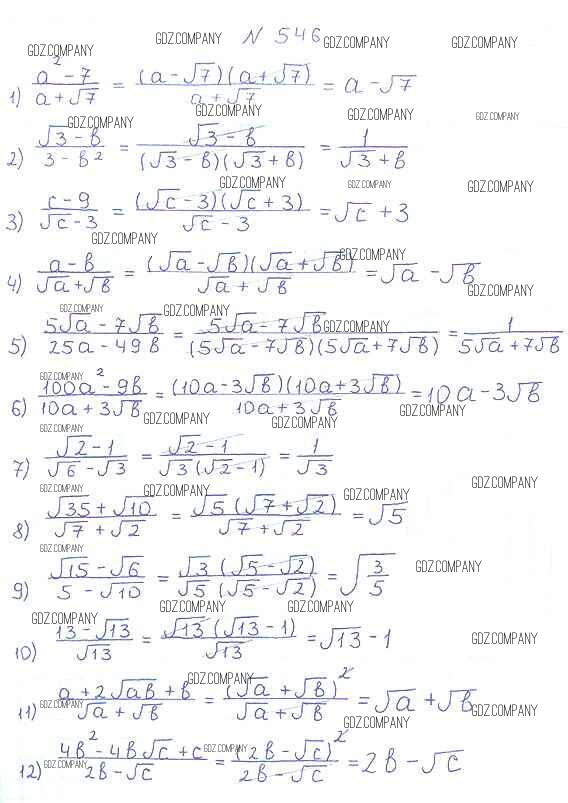 GDZ.COMPANY N 546 GDZ.COMPANY GDZ.COMPANY
GDZ.COMPANY
1) (a² - 7)/(a + √7) = ((a - √7)(a + √7))/(a + √7) = a - √7
GDZ.COMPANY GDZ.COMPANY GDZ.COMPANY GDZ.COMPANY
2) (√3 - b)/(3 - b²) = (√3 - b)/((√3 - b)(√3 + b)) = 1/(√3 + b)
GDZ.COMPANY GDZ.COMPANY GDZ.COMPANY
3) (c - 9)/(√c - 3) = ((√c - 3)(√c + 3))/(√c - 3) = √c + 3
GDZ.COMPANY GDZ.COMPANY
4) (a - b)/(√a + √b) = ((√a - √b)(√a + √b))/(√a + √b) = √a - √b
GDZ.COMPANY
GDZ.COMPANY GDZ.COMPANY GDZ.COMPANY
5) (5√a - 7√b)/(25a - 49b) = (5√a - 7√b)/((5√a - 7√b)(5√a + 7√b)) = 1/(5√a + 7√b)
GDZ.COMPANY
6) (100a² - 9b)/(10a + 3√b) = ((10a - 3√b)(10a + 3√b))/(10a + 3√b) = 10a - 3√b
GDZ.COMPANY GDZ.COMPANY GDZ.COMPANY
GDZ.COMPANY
7) (√2 - 1)/(√6 - √3) = (√2 - 1)/(√3(√2 - 1)) = 1/√3
GDZ.COMPANY
GDZ.COMPANY GDZ.COMPANY GDZ.COMPANY
8) (√35 + √10)/(√7 + √2) = (√5(√7 + √2))/(√7 + √2) = √5
GDZ.COMPANY
9) (√15 - √6)/(5 - √10) = (√3(√5 - √2))/(√5(√5 - √2)) = √(3/5)
GDZ.COMPANY
GDZ.COMPANY GDZ.COMPANY GDZ.COMPANY
10) (13 - √13)/√13 = (√13(√13 - 1))/√13 = √13 - 1
GDZ.COMPANY
GDZ.COMPANY
11) (a + 2√ab + b)/(√a + √b) = (√a + √b)²/(√a + √b) = √a + √b
GDZ.COMPANY GDZ.COMPANY
GDZ.COMPANY
12) (4b² - 4b√c + c)/(2b - √c) = (2b - √c)²/(2b - √c) = 2b - √c
GDZ.COMPANY GDZ.COMPANY